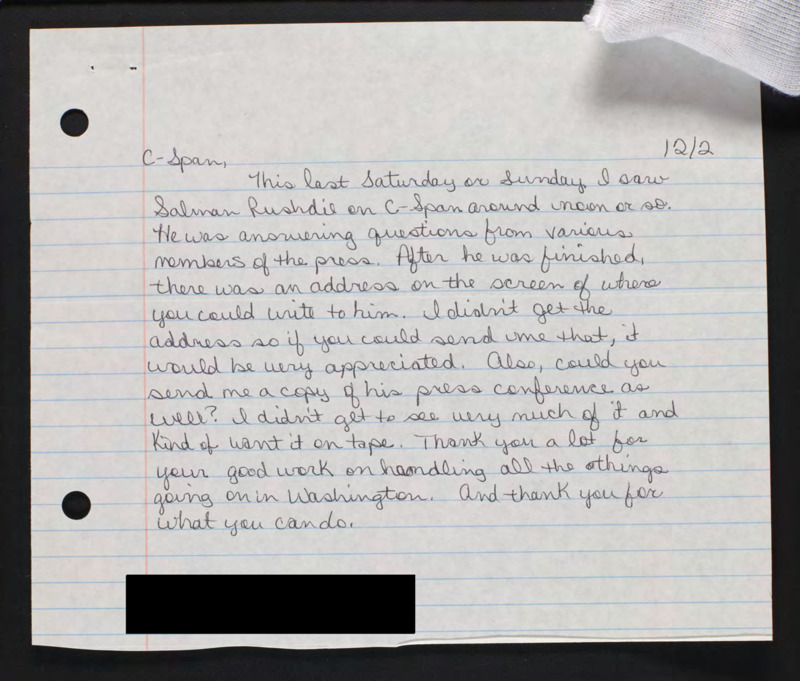 12/2
C-Span,
This last Saturday or Sunday I saw
Salman Rushdie on C-Span around noon or so.
He was answering questions from various
members of the press. After he was finished,
there was an address on the screen of where
you could write to him. I didn't get the
address so if you could send me that, it
would be very appreciated. Also, could you
send me a copy of his press conference as
well? I didn't get to see very much of it and
kind of want it on tape. Thank you a lot for
your good work on handling all the things
going on in Washington. And thank you for
what you can do.